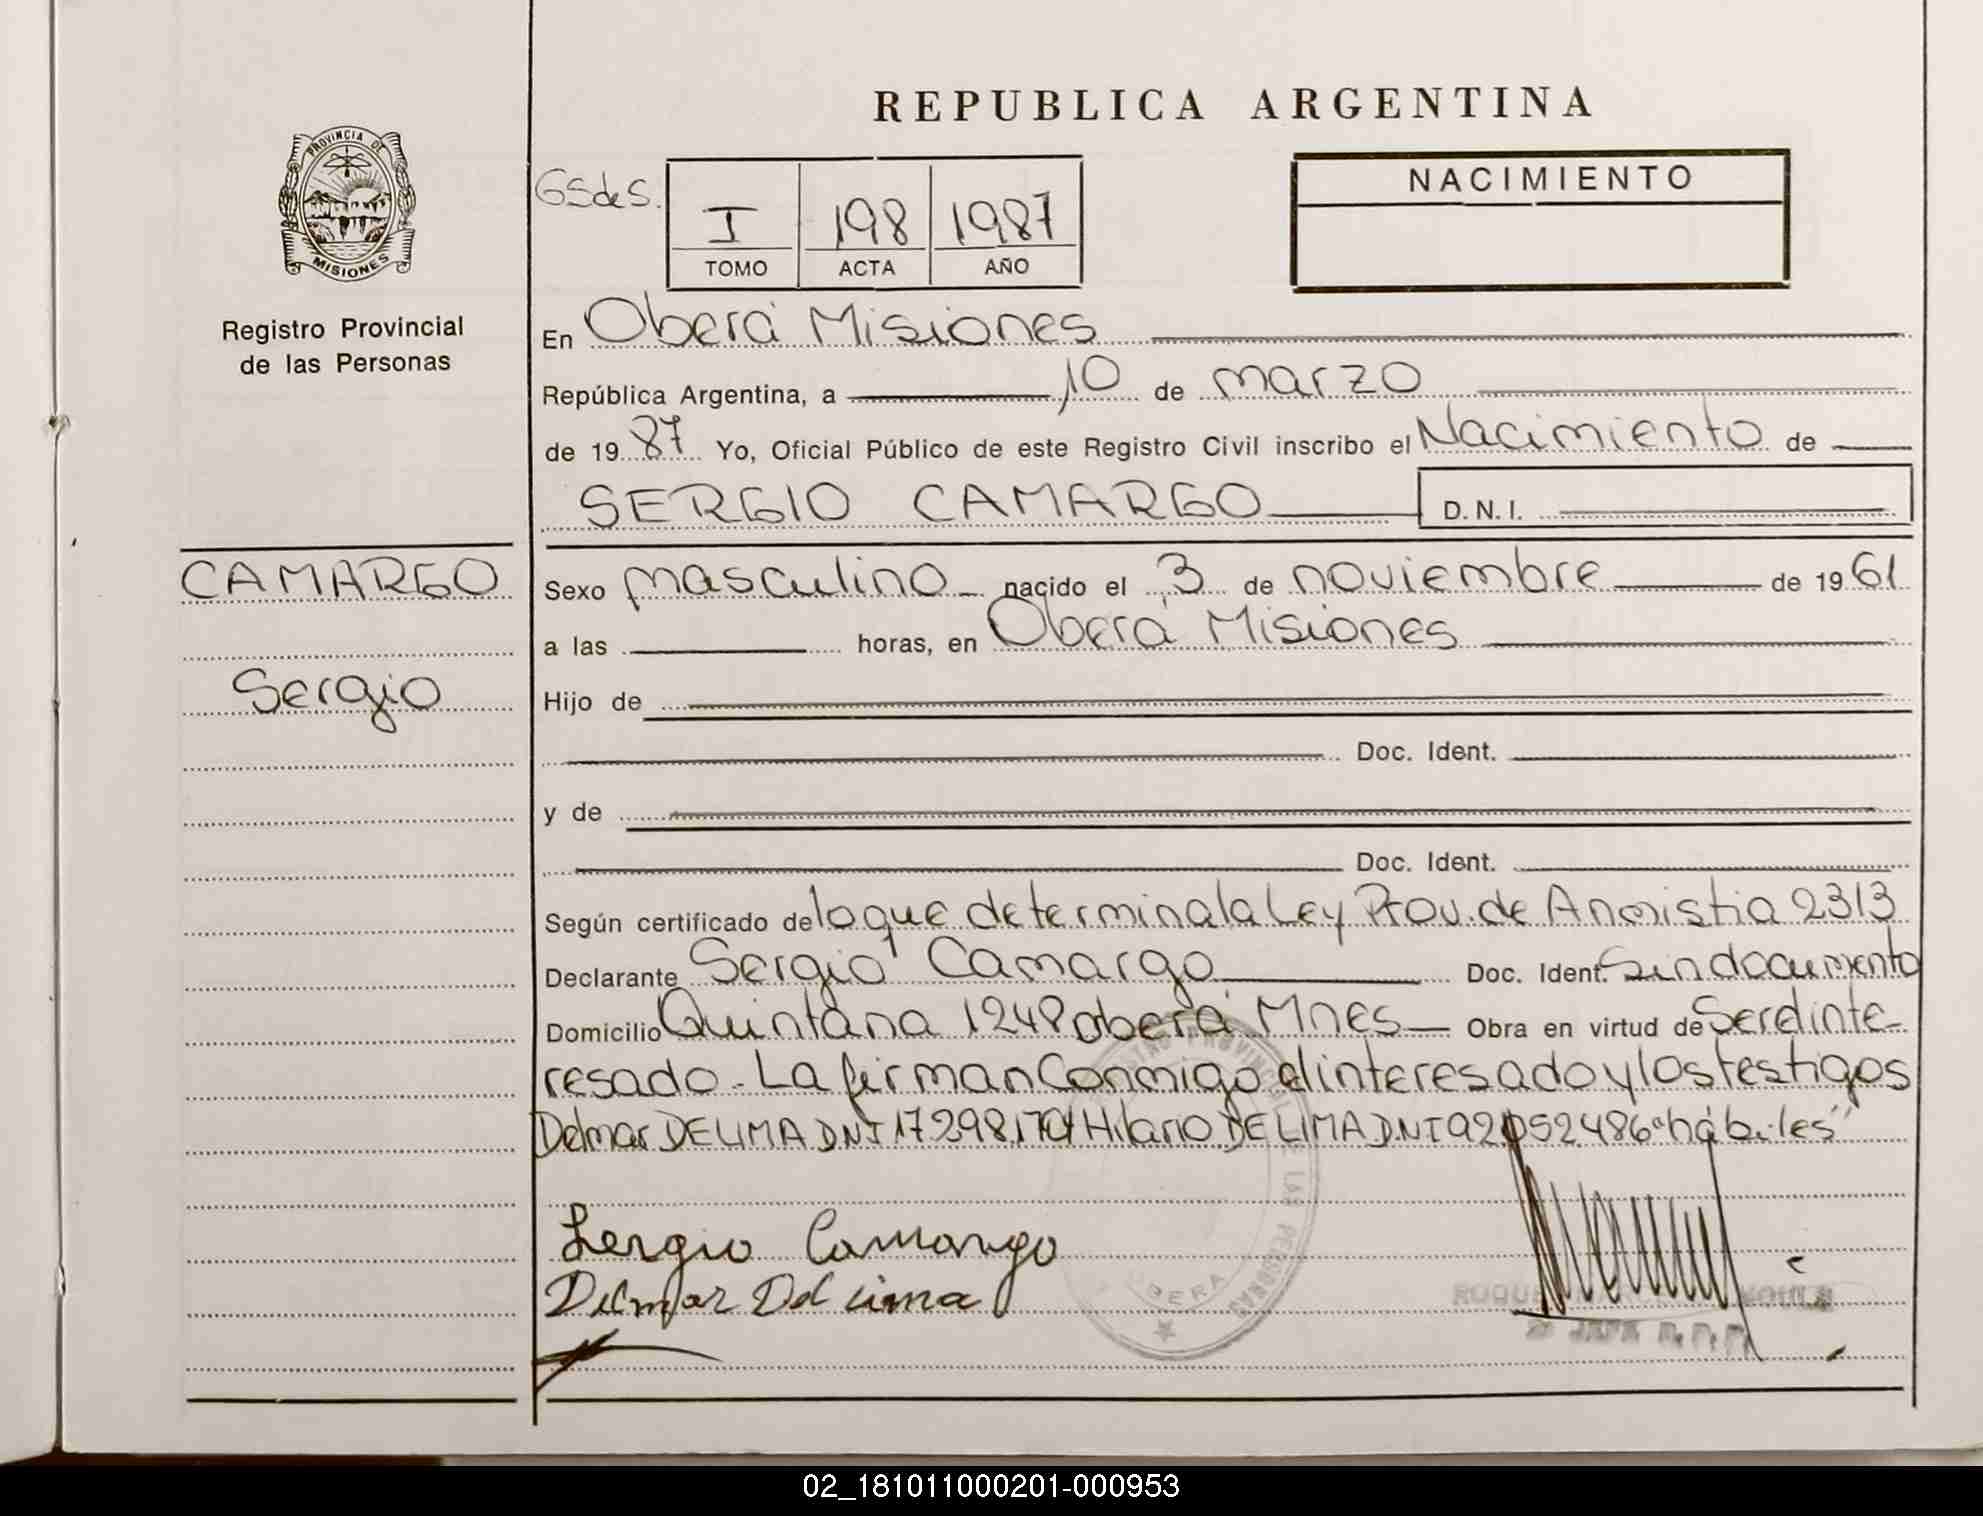 REPUBLICA ARGENTINA
PROVINCIA DE
MISIONES
Registro Provincial
de las Personas
GSdeS.
I 198 1987
TOMO ACTA AÑO
NACIMIENTO
En Oberá Misiones
República Argentina, a 10 de marzo
de 1987 Yo, Oficial Público de este Registro Civil inscribo el Nacimiento de
SERGIO CAMARGO D.N.I.
CAMARGO
Sergio
Sexo masculino nacido el 3 de noviembre de 1961
a las horas, en Oberá Misiones
Hijo de
Doc. Ident.
y de
Doc. Ident.
Según certificado de lo que determina la Ley Prov. de Amnistia 2313
Declarante Sergio Camargo Doc. Ident. Sin documento
Domicilio Quintana 1248 Oberá Mnes Obra en virtud de Ser el inte-
resado. La firman Conmigo el interesado y los testigos
Delmar DE LIMA DNI Hilario DE LIMA D.N.I 92052486 "hábiles"
Sergio Camargo
Delmar Del Lima
OBERA
LAS PERSONAS
ROQUE
JEFE R.P.P.
02_181011000201-000953